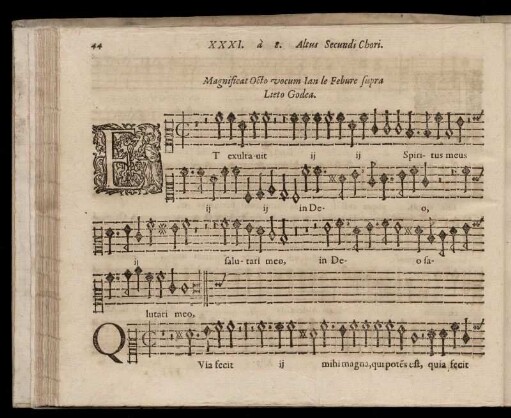 44 XXXI. à 8. Altus Secundi Chori.
Magnificat Octo vocum Ian le Febure supra
Lieto Godea.
ET exultauit ij ij Spiri- tus meus
ij ij in De- o,
ij salu- tari meo, in De- o sa-
lutari meo,
QVia fecit ij mihi magna, qui potēs est, quia fecit